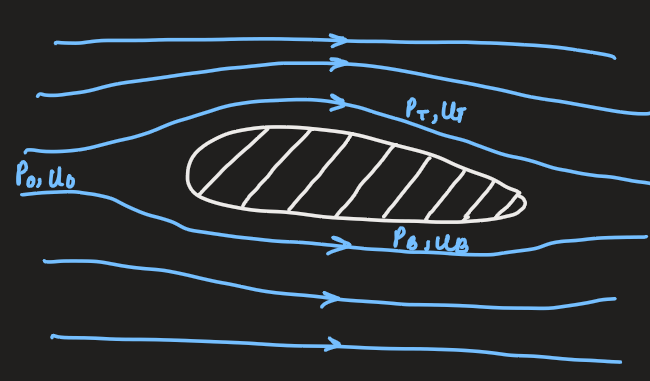 P_T, U_T
P_0, U_0
P_B, U_B